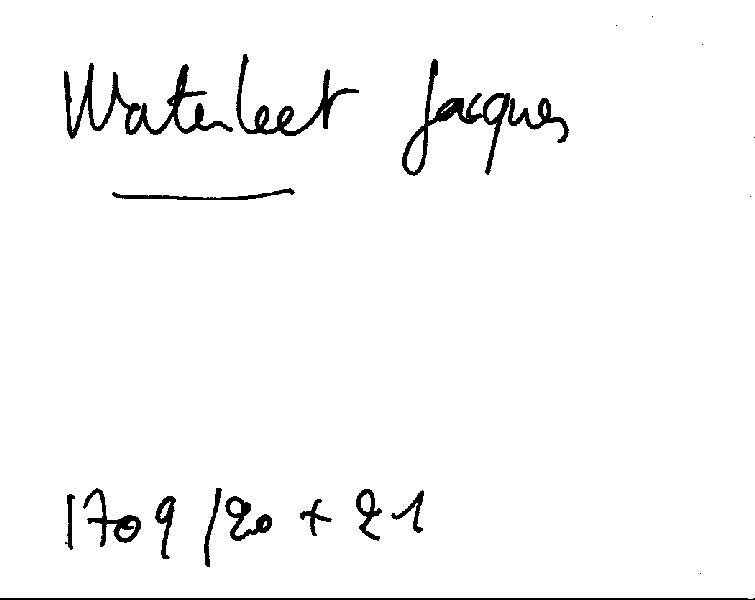 Waterleet Jacques
1709/20 + 21